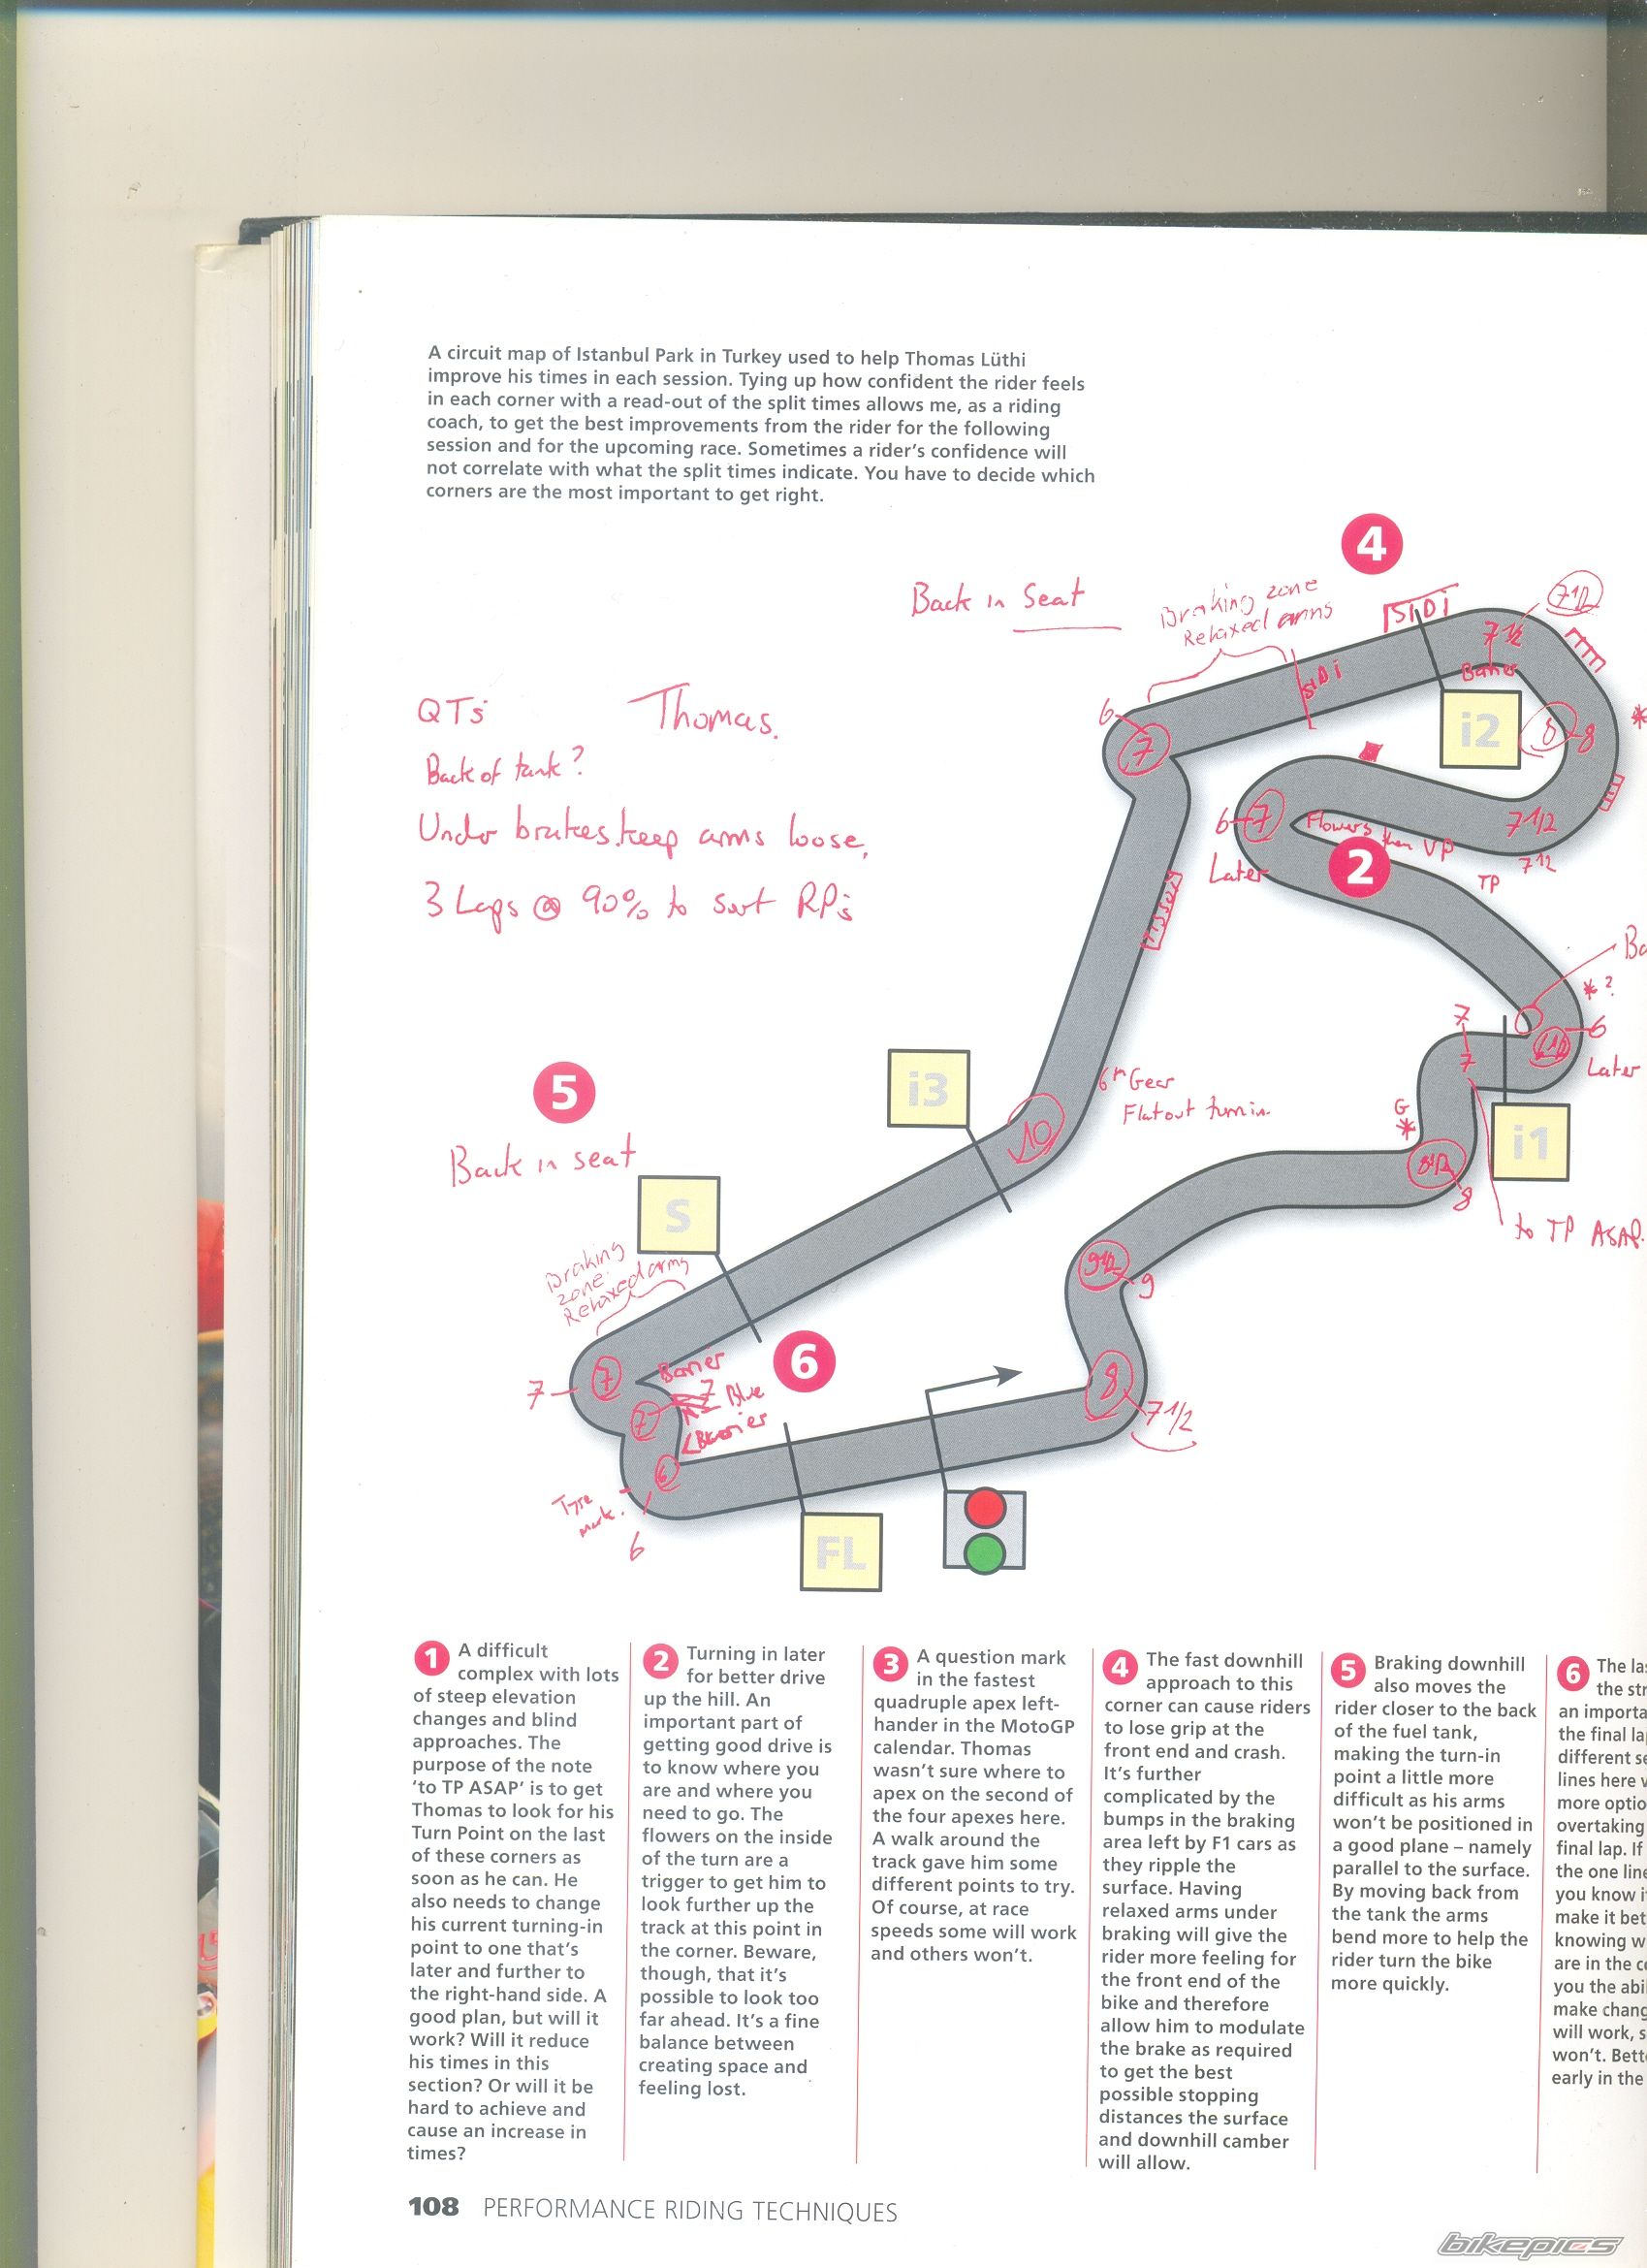 A circuit map of Istanbul Park in Turkey used to help Thomas Lüthi
improve his times in each session. Tying up how confident the rider feels
in each corner with a read-out of the split times allows me, as a riding
coach, to get the best improvements from the rider for the following
session and for the upcoming race. Sometimes a rider's confidence will
not correlate with what the split times indicate. You have to decide which
corners are the most important to get right.
4
Back in Seat
Braking zone
Relaxed arms
SIDI
7 1/2
7 1/2
Barrier
SIDI
i2
8
8
*
6
7
QTs
Thomas.
Back of tank?
Under brakes keep arms loose,
3 Laps @ 90% to sort RPs
6
7
Flowers
then VP
7 1/2
7 1/2
Later
2
TP
TISSOT
Ba
*?
7
7
6
Later
i1
5
i3
6th Gear
Flat out turn in
10
G
*
8 1/2
8
Back in seat
S
to TP ASAP.
Braking
zone
Relaxed arms
9 1/2
9
6
7
7
Barrier
7
7
Blue
Barrier
8
7 1/2
6
Tyre
mark.
6
FL
1 A difficult
complex with lots
of steep elevation
changes and blind
approaches. The
purpose of the note
'to TP ASAP' is to get
Thomas to look for his
Turn Point on the last
of these corners as
soon as he can. He
also needs to change
his current turning-in
point to one that's
later and further to
the right-hand side. A
good plan, but will it
work? Will it reduce
his times in this
section? Or will it be
hard to achieve and
cause an increase in
times?
2 Turning in later
for better drive
up the hill. An
important part of
getting good drive is
to know where you
are and where you
need to go. The
flowers on the inside
of the turn are a
trigger to get him to
look further up the
track at this point in
the corner. Beware,
though, that it's
possible to look too
far ahead. It's a fine
balance between
creating space and
feeling lost.
3 A question mark
in the fastest
quadruple apex left-
hander in the MotoGP
calendar. Thomas
wasn't sure where to
apex on the second of
the four apexes here.
A walk around the
track gave him some
different points to try.
Of course, at race
speeds some will work
and others won't.
4 The fast downhill
approach to this
corner can cause riders
to lose grip at the
front end and crash.
It's further
complicated by the
bumps in the braking
area left by F1 cars as
they ripple the
surface. Having
relaxed arms under
braking will give the
rider more feeling for
the front end of the
bike and therefore
allow him to modulate
the brake as required
to get the best
possible stopping
distances the surface
and downhill camber
will allow.
5 Braking downhill
also moves the
rider closer to the back
of the fuel tank,
making the turn-in
point a little more
difficult as his arms
won't be positioned in
a good plane – namely
parallel to the surface.
By moving back from
the tank the arms
bend more to help the
rider turn the bike
more quickly.
6 The las
the str
an importa
the final la
different se
lines here w
more optio
overtaking
final lap. If
the one line
you know i
make it bet
knowing w
are in the co
you the abi
make chang
will work, s
won't. Bette
early in the
108 PERFORMANCE RIDING TECHNIQUES
bikepics